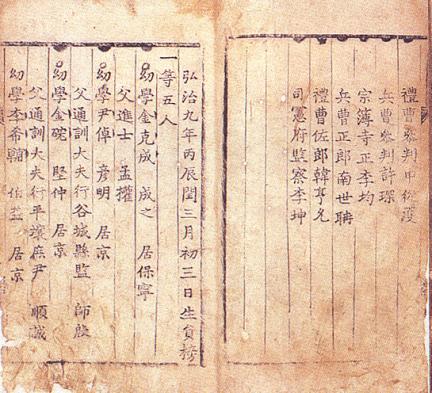 禮曹參判申從濩
兵曹參判許琛
宗簿寺正李均
兵曹正郎南世聃
禮曹佐郎韓亨允
司憲府監察李坤
弘治九年丙辰閏三月初三日生員榜
一等五人
幼學金克成 成之 居保寧
父進士 孟權
幼學尹倬 彦明 居京
父通訓大夫行谷城縣監 師殷
幼學金硡 堅仲 居京
父通訓大夫行平壤庶尹 順誠
幼學李希輔 伯益 居京